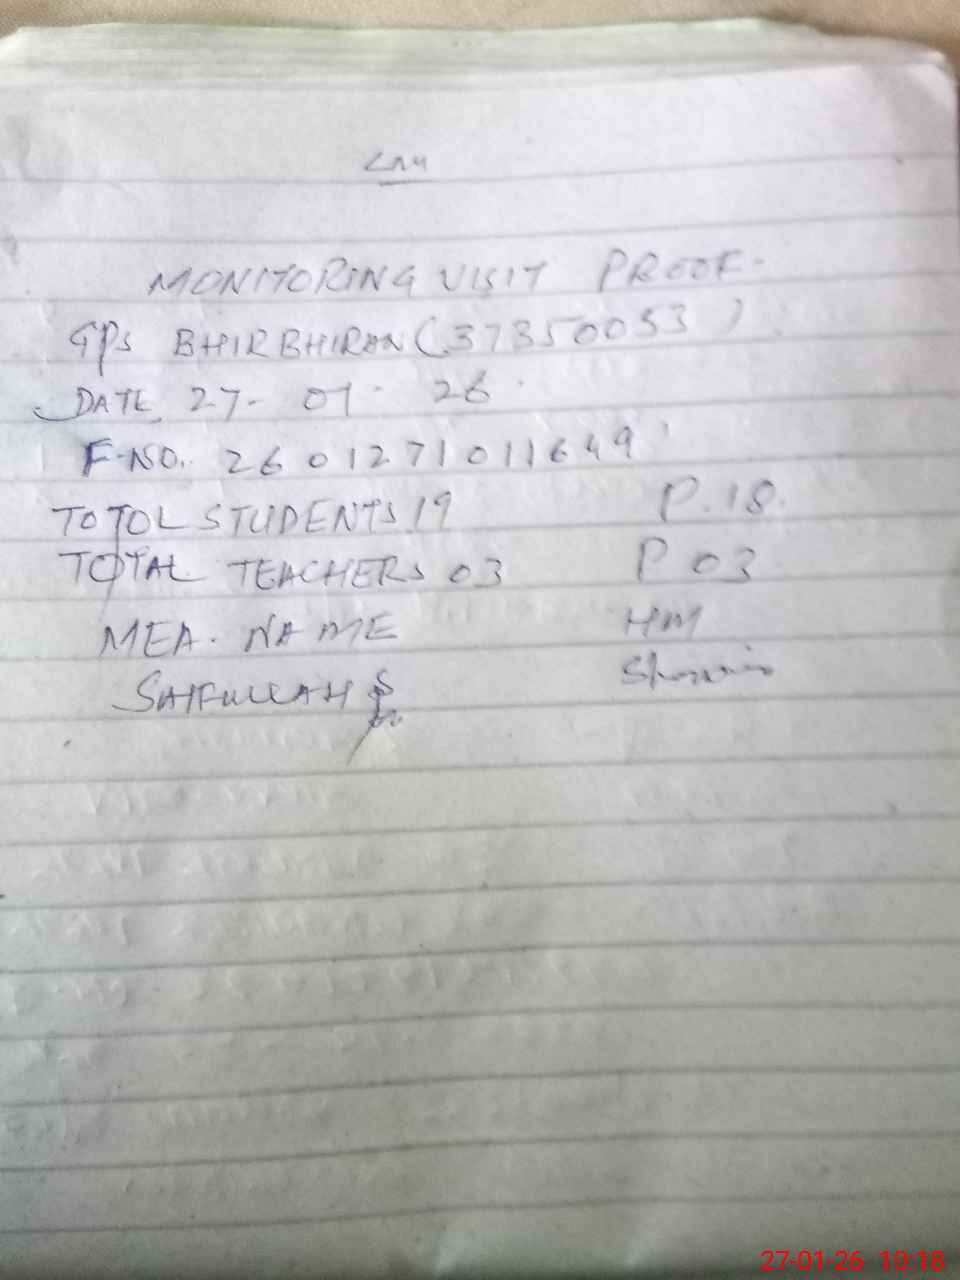 MONITORING VISIT PROOF.
GPS BHIRBHIRAN (37350053)
DATE 27-01-26.
F-NO. 2601271011649
TOTOL STUDENTS 19 P.18.
TOTAL TEACHERS 03 P 03
MEA. NAME HM
SAIFULLAH
27-01-26 10:18